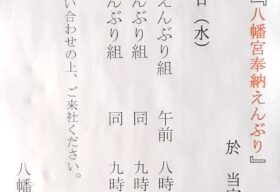 『八幡宮奉納えんぶり』
於 当
日（水）
えんぶり組 午前 八時
えんぶり組 同 九時
えんぶり組 同 九時
い合わせの上、ご来社ください。
八幡